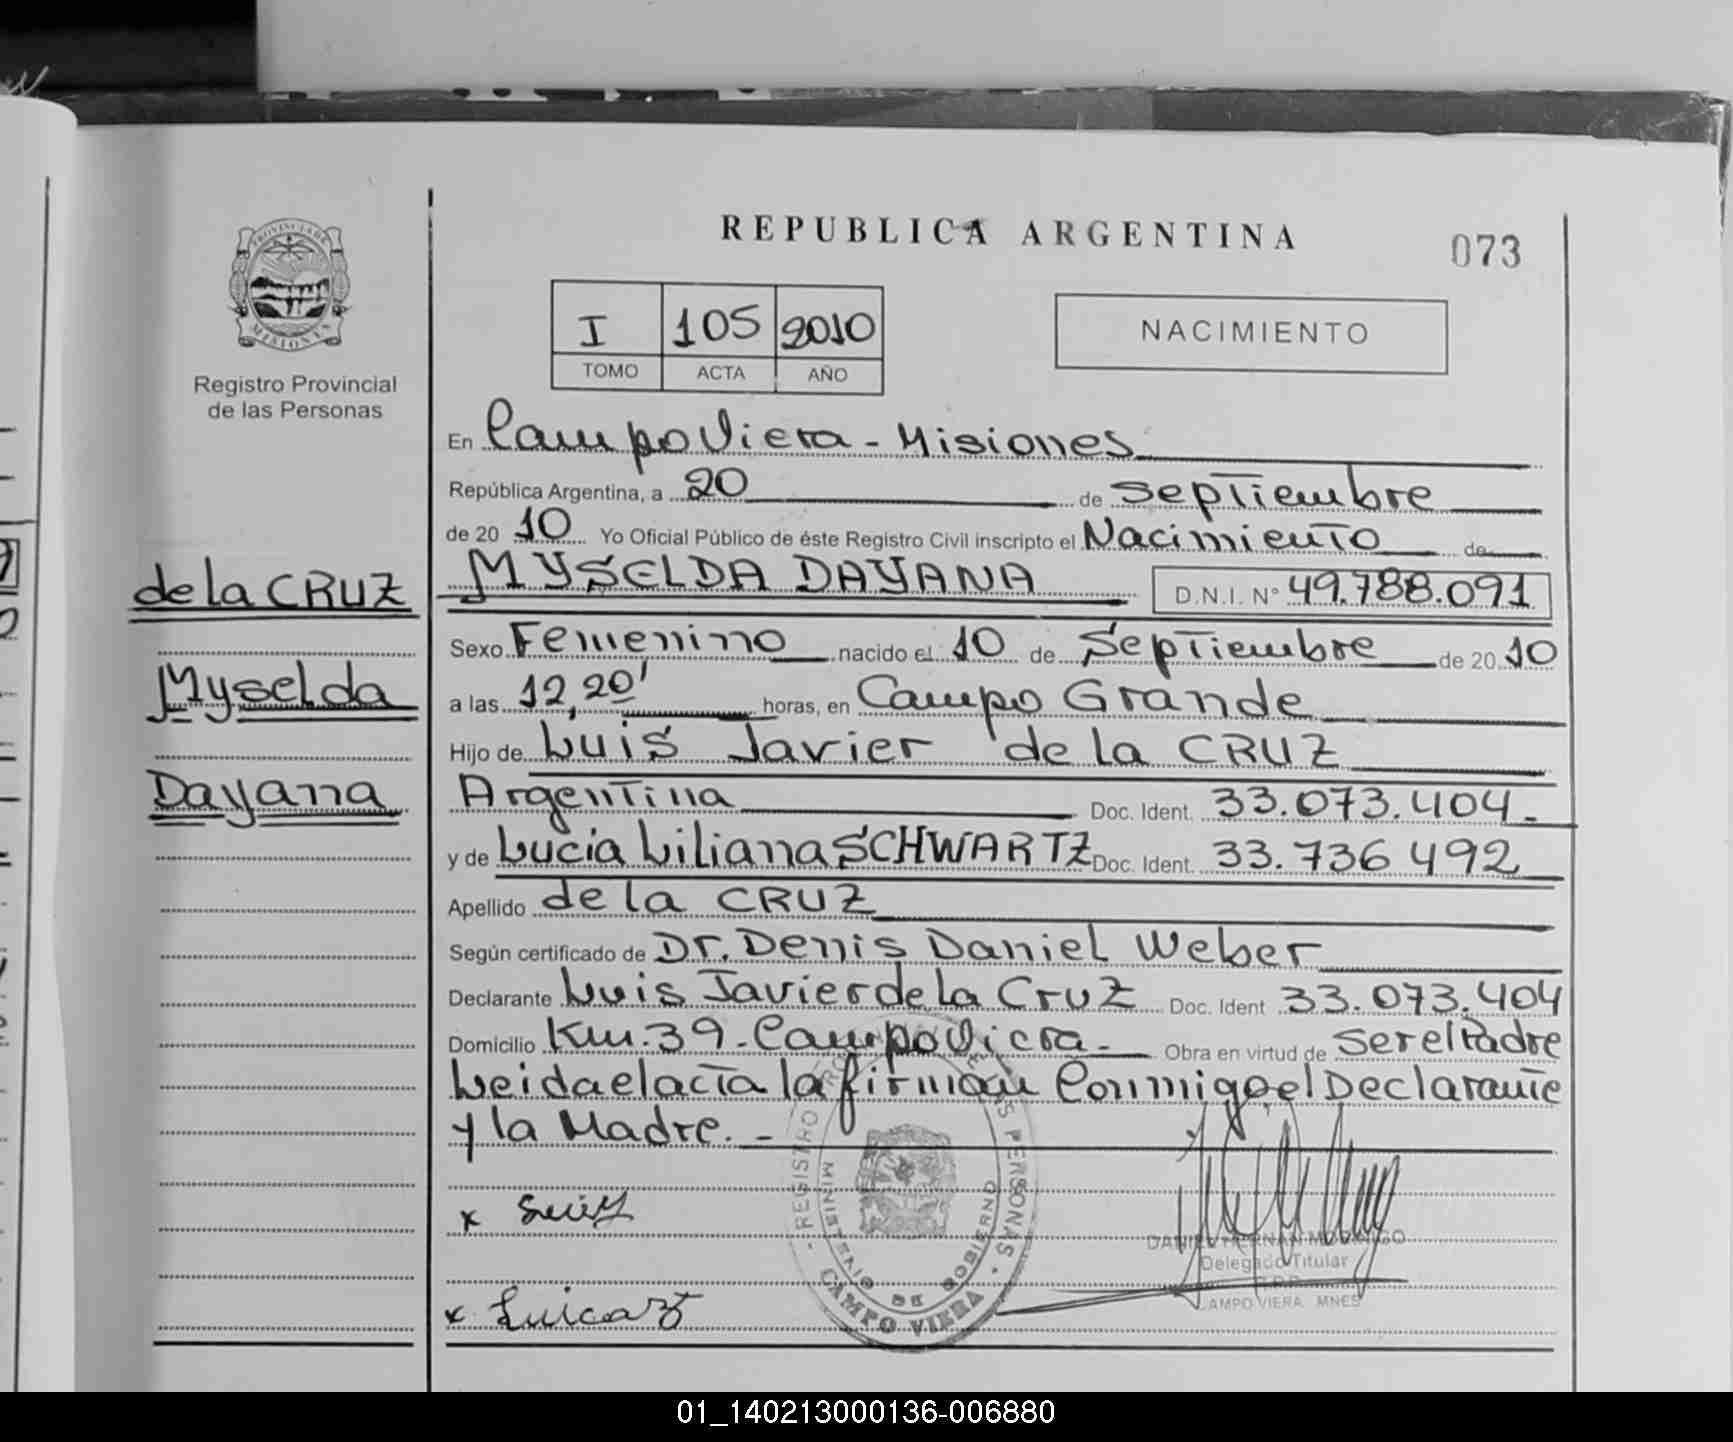 REPUBLICA ARGENTINA
073
PROVINCIA DE
MISIONES
Registro Provincial
de las Personas
I 105 2010
TOMO ACTA AÑO
NACIMIENTO
En Campo Viera - Misiones
República Argentina, a 20 de septiembre
de 20 10 Yo Oficial Público de éste Registro Civil inscripto el Nacimiento de
de la CRUZ
Myselda
Dayana
MYSELDA DAYANA D.N.I. N° 49.788.091
Sexo Femenino nacido el 10 de Septiembre de 20 10
a las 12,20' horas, en Campo Grande
Hijo de Luis Javier de la CRUZ
Argentina Doc. Ident. 33.073.404.-
y de Lucia Liliana SCHWARTZ Doc. Ident. 33.736 492
Apellido de la CRUZ
Según certificado de Dr. Denis Daniel Weber
Declarante Luis Javier de la Cruz Doc. Ident 33.073.404
Domicilio Km. 39 - Campo Viera - Obra en virtud de ser el Padre
Leida el acta la firman Conmigo el Declarante
y la Madre. -
x
x
REGISTRO PERSONAS
MINISTERIO DE GOBIERNO
CAMPO VIERA
Delegado Titular
CAMPO VIERA MNES
01_140213000136-006880